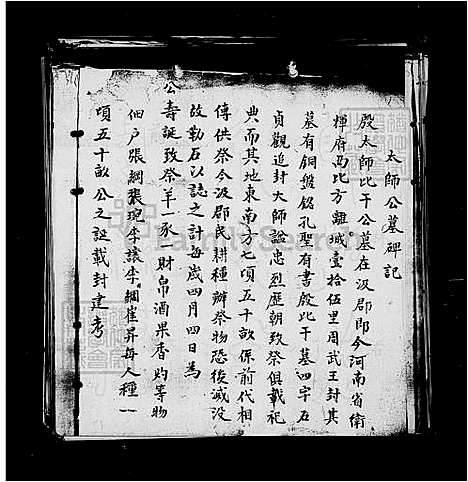 太師公墓碑記
殷太師比干公墓在汲郡即今河南省衛
輝府西北方離城壹拾伍里周武王封其
墓有銅盤銘孔聖有書殷比干墓四字石
貞觀追封太師諡忠烈歷朝致祭俱載祀
典而其地東南方七項五十畝係前代相
傳供祭今汲郡民耕種辦祭物恐後滅沒
故勒石以誌之計每歲四月四日為
公壽誕致祭羊一豕一財帛酒果香灼等物
佃戶張綱張琬李讓李綱崔昇每人種一
項五十畝公之誕載封建考
FamilySearch